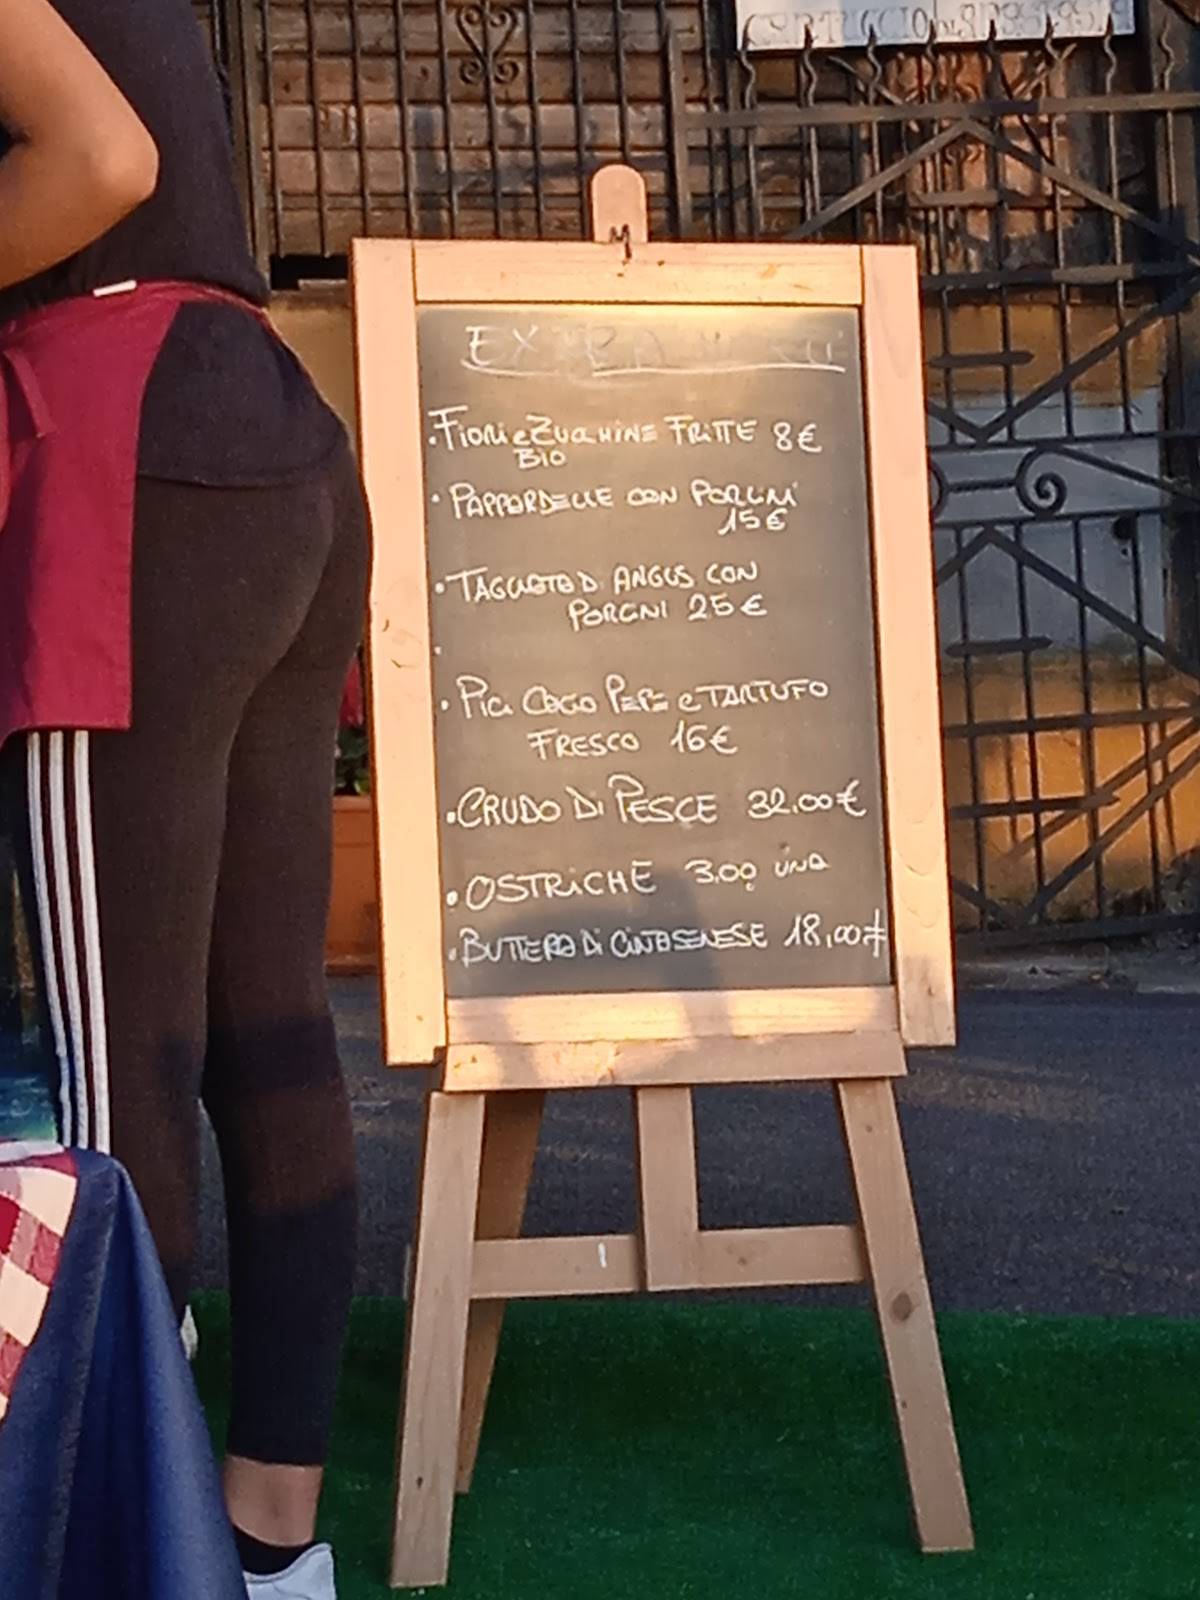 EXTRA MENÙ
• FIORI e ZUCCHINE FRITTE 8€
BIO
• PAPPARDELLE CON PORCINI
15€
• TAGLIATA DI ANGUS CON
PORCINI 25€
•
• PICI CACIO PEPE e TARTUFO
FRESCO 16€
• CRUDO DI PESCE 32,00€
• OSTRICHE 3,00 UNA
• BUTTERA DI CINTASENESE 18,00€